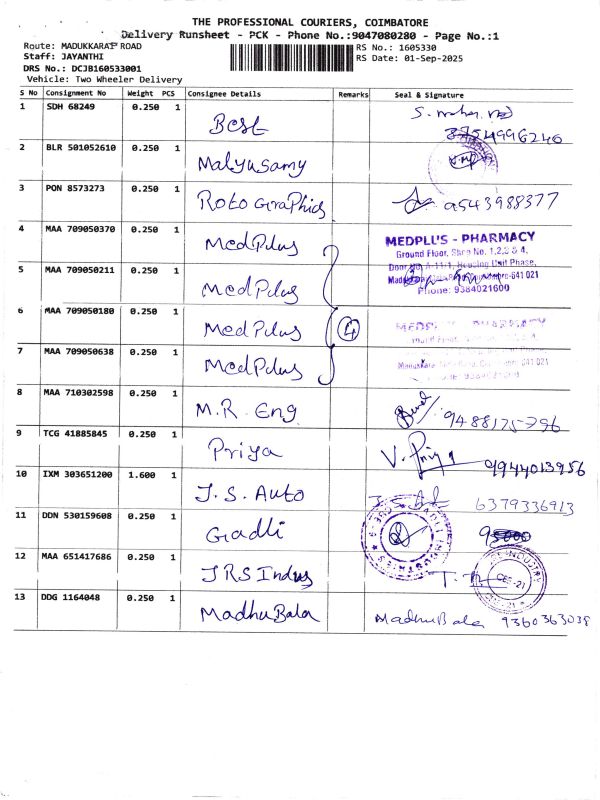 THE PROFESSIONAL COURIERS, COIMBATORE
Delivery Runsheet - PCK - Phone No.:9047080280 - Page No.:1
Route: MADUKKARAI ROAD
RS No.: 1605330
Staff: JAYANTHI
RS Date: 01-Sep-2025
DRS No.: DCJB160533001
Vehicle: Two Wheeler Delivery
S No Consignment No Weight PCS Consignee Details Remarks Seal & Signature
1 SDH 68249 0.250 1 Best
8754996246
2 BLR 501052610 0.250 1 Malyusamy
3 PON 8573273 0.250 1 Roto Graphics 9543988377
4 MAA 709050370 0.250 1 MedPlus MEDPLUS - PHARMACY
Ground Floor, Shop No. 1,2,3 & 4,
5 MAA 709050211 0.250 1 MedPlus
Phone: 9384021600
6 MAA 709050180 0.250 1 MedPlus 4 MEDPLUS PHARMACY
7 MAA 709050638 0.250 1 MedPlus
8 MAA 710302598 0.250 1 M.R. Eng 9488175796
9 TCG 41885845 0.250 1 Priya V. Priya 9944013956
10 IXM 303651200 1.600 1 J.S. Auto 6379336913
11 DDN 530159608 0.250 1 Gadli
12 MAA 651417686 0.250 1 JRS Indus
13 DDG 1164048 0.250 1 MadhuBala MadhuBala 9360363038